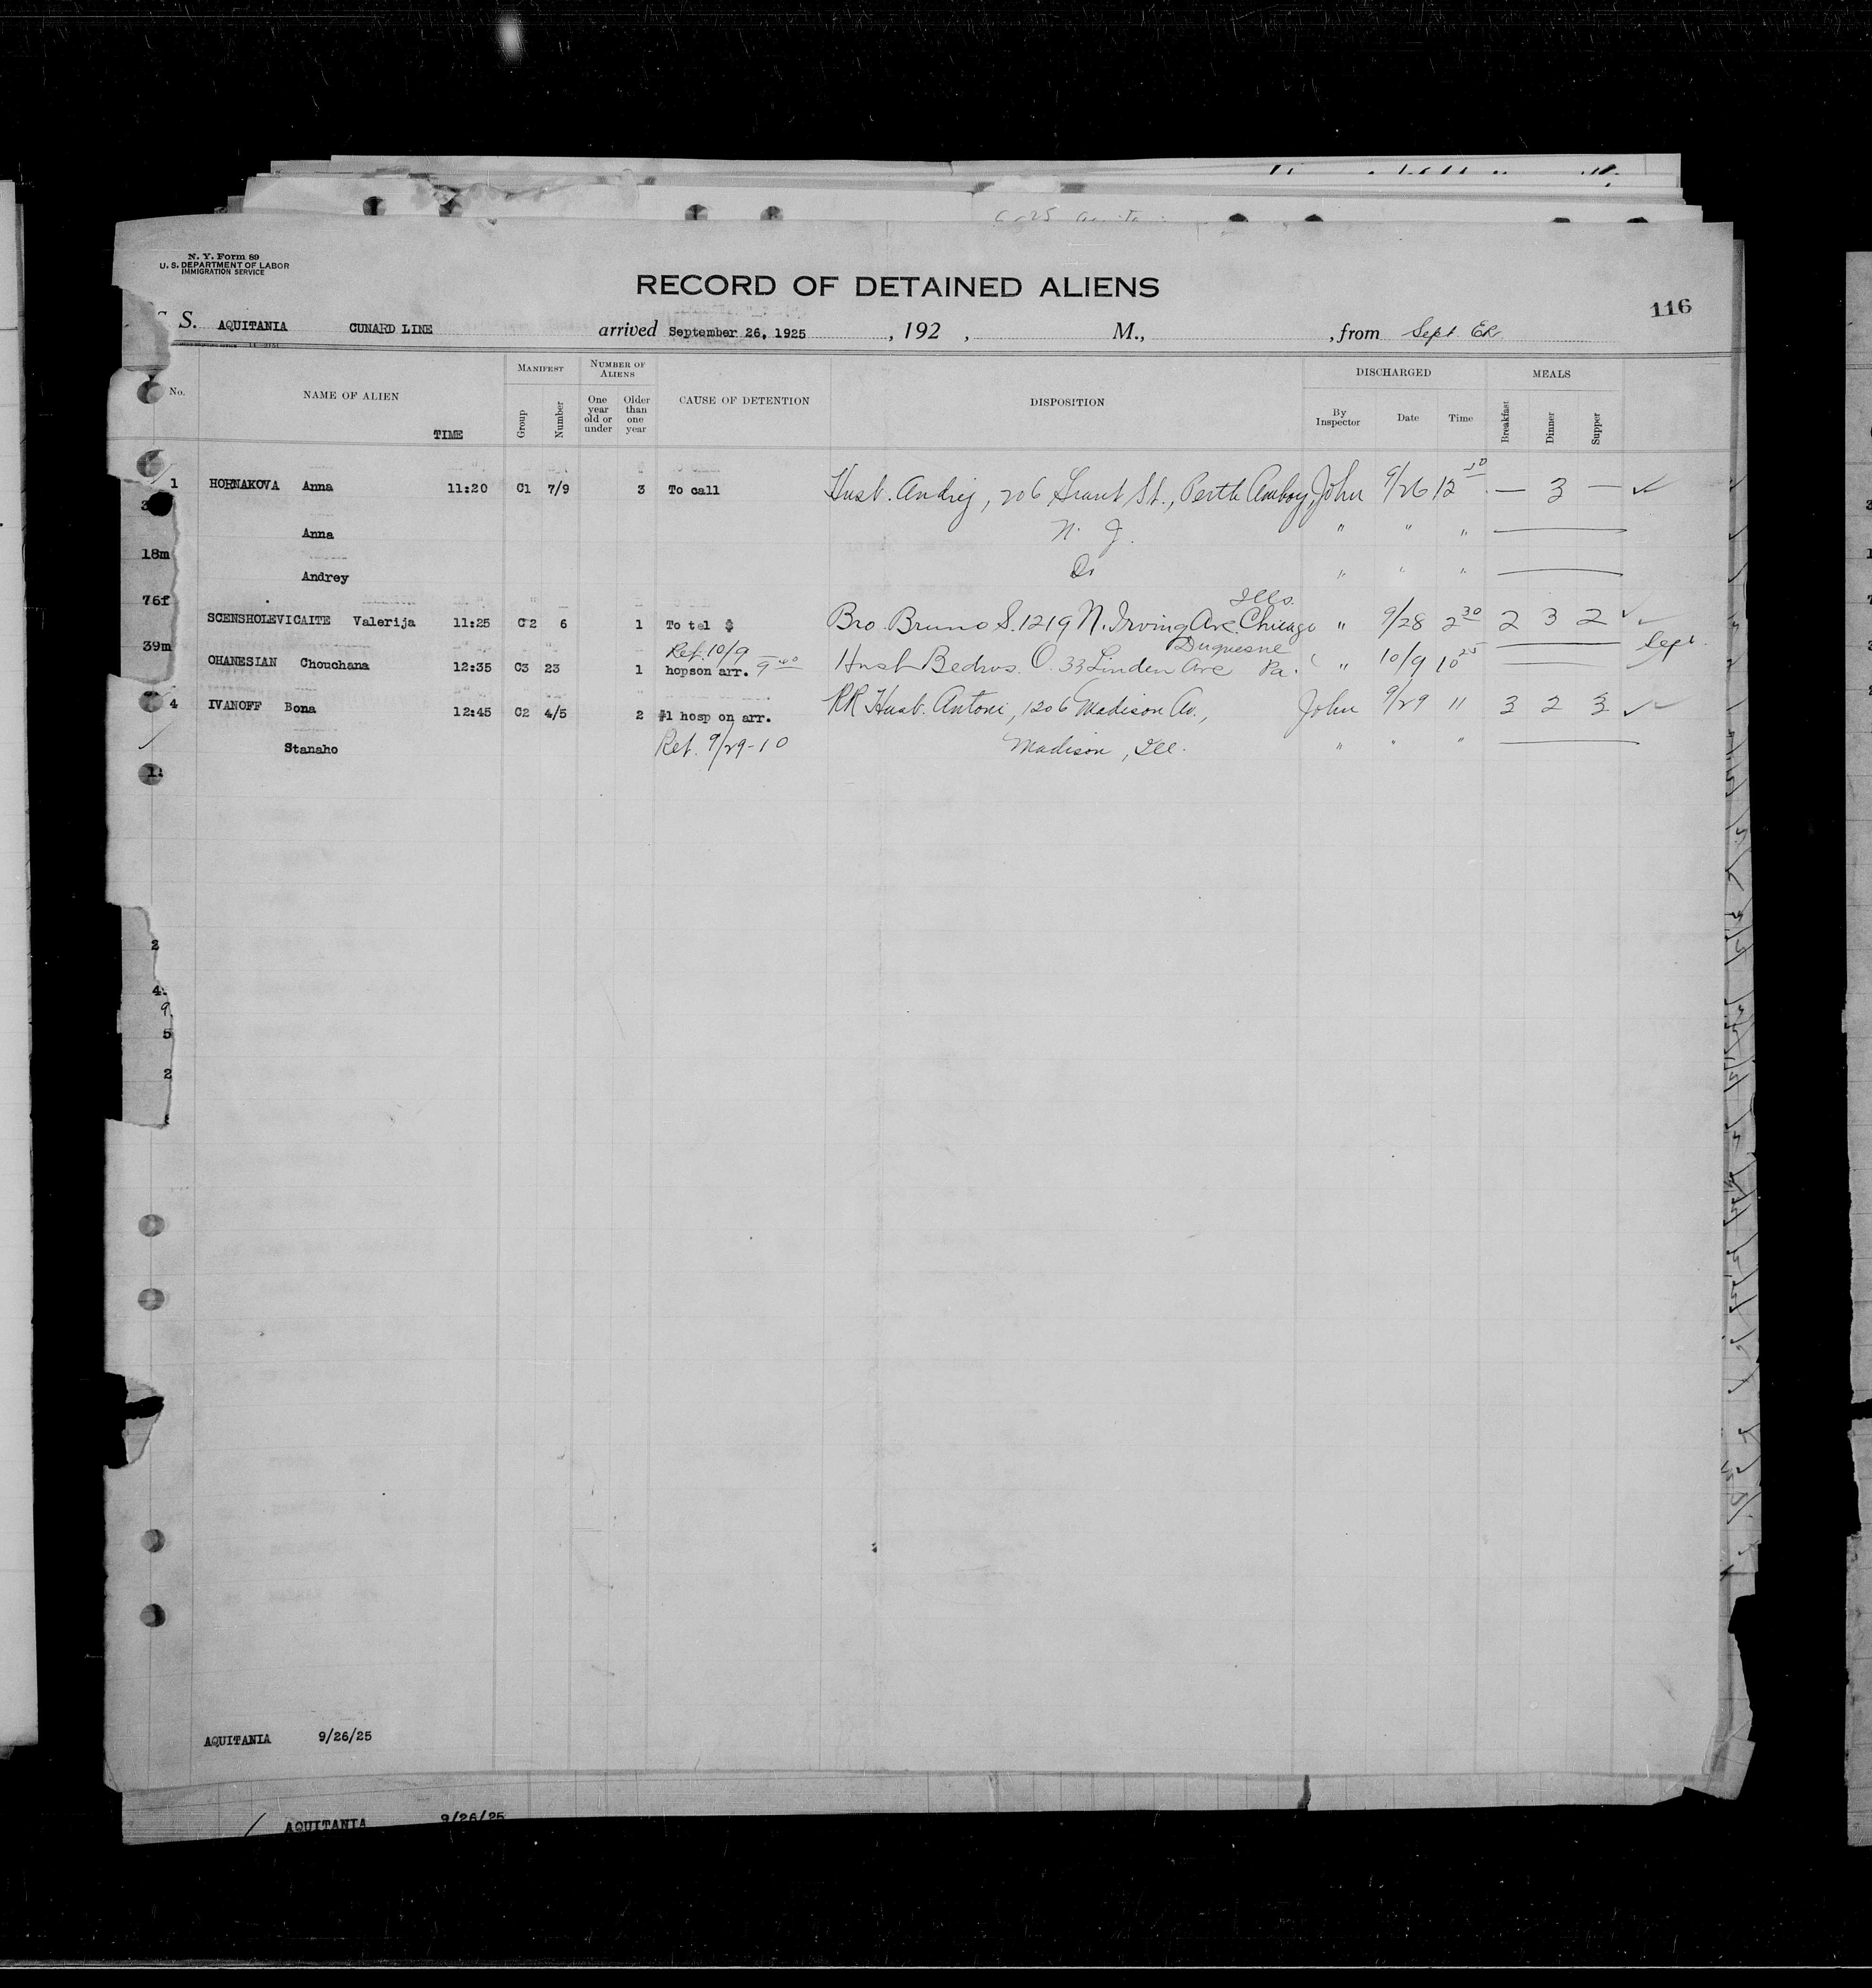 N. Y. Form 89
U. S. DEPARTMENT OF LABOR
IMMIGRATION SERVICE
RECORD OF DETAINED ALIENS
116
S. AQUITANIA CUNARD LINE arrived September 26, 1925, 192 , M., , from Sept
No. NAME OF ALIEN TIME MANIFEST Group Number NUMBER OF ALIENS One year old or under Older than one year CAUSE OF DETENTION DISPOSITION DISCHARGED By Inspector Date Time MEALS Breakfast Dinner Supper
1 HORNAKOVA Anna 11:20 C1 7/9 3 To call Husb. Andrej, 206 Grant St., Perth Amboy, John 9/26 12 — 3 —
Anna N. J. " " "
18m
Andrey Do " " "
76f
Ills.
SCENSHOLEVICAITE Valerija 11:25 C2 6 1 To tel $ Bro. Bruno S. 1219 N. Irving Ave. Chicago " 9/28 2 30 2 3 2
39m Ret. 10/9 9 40 Duquesne Sept
OHANESIAN Chouchana 12:35 C3 23 1 hopson arr. Husb Bedros. O. 33 Linden Ave Pa. " 10/9 10 25
4 IVANOFF Bona 12:45 C2 4/5 2 #1 hosp on arr. RR Husb. Antoni, 1206 Madison Av., John 9/29 11 3 2 3
Stanaho Ret. 9/29-10 Madison, Ill. " " "
2
4
9
5
2
AQUITANIA 9/26/25
AQUITANIA 9/26/25